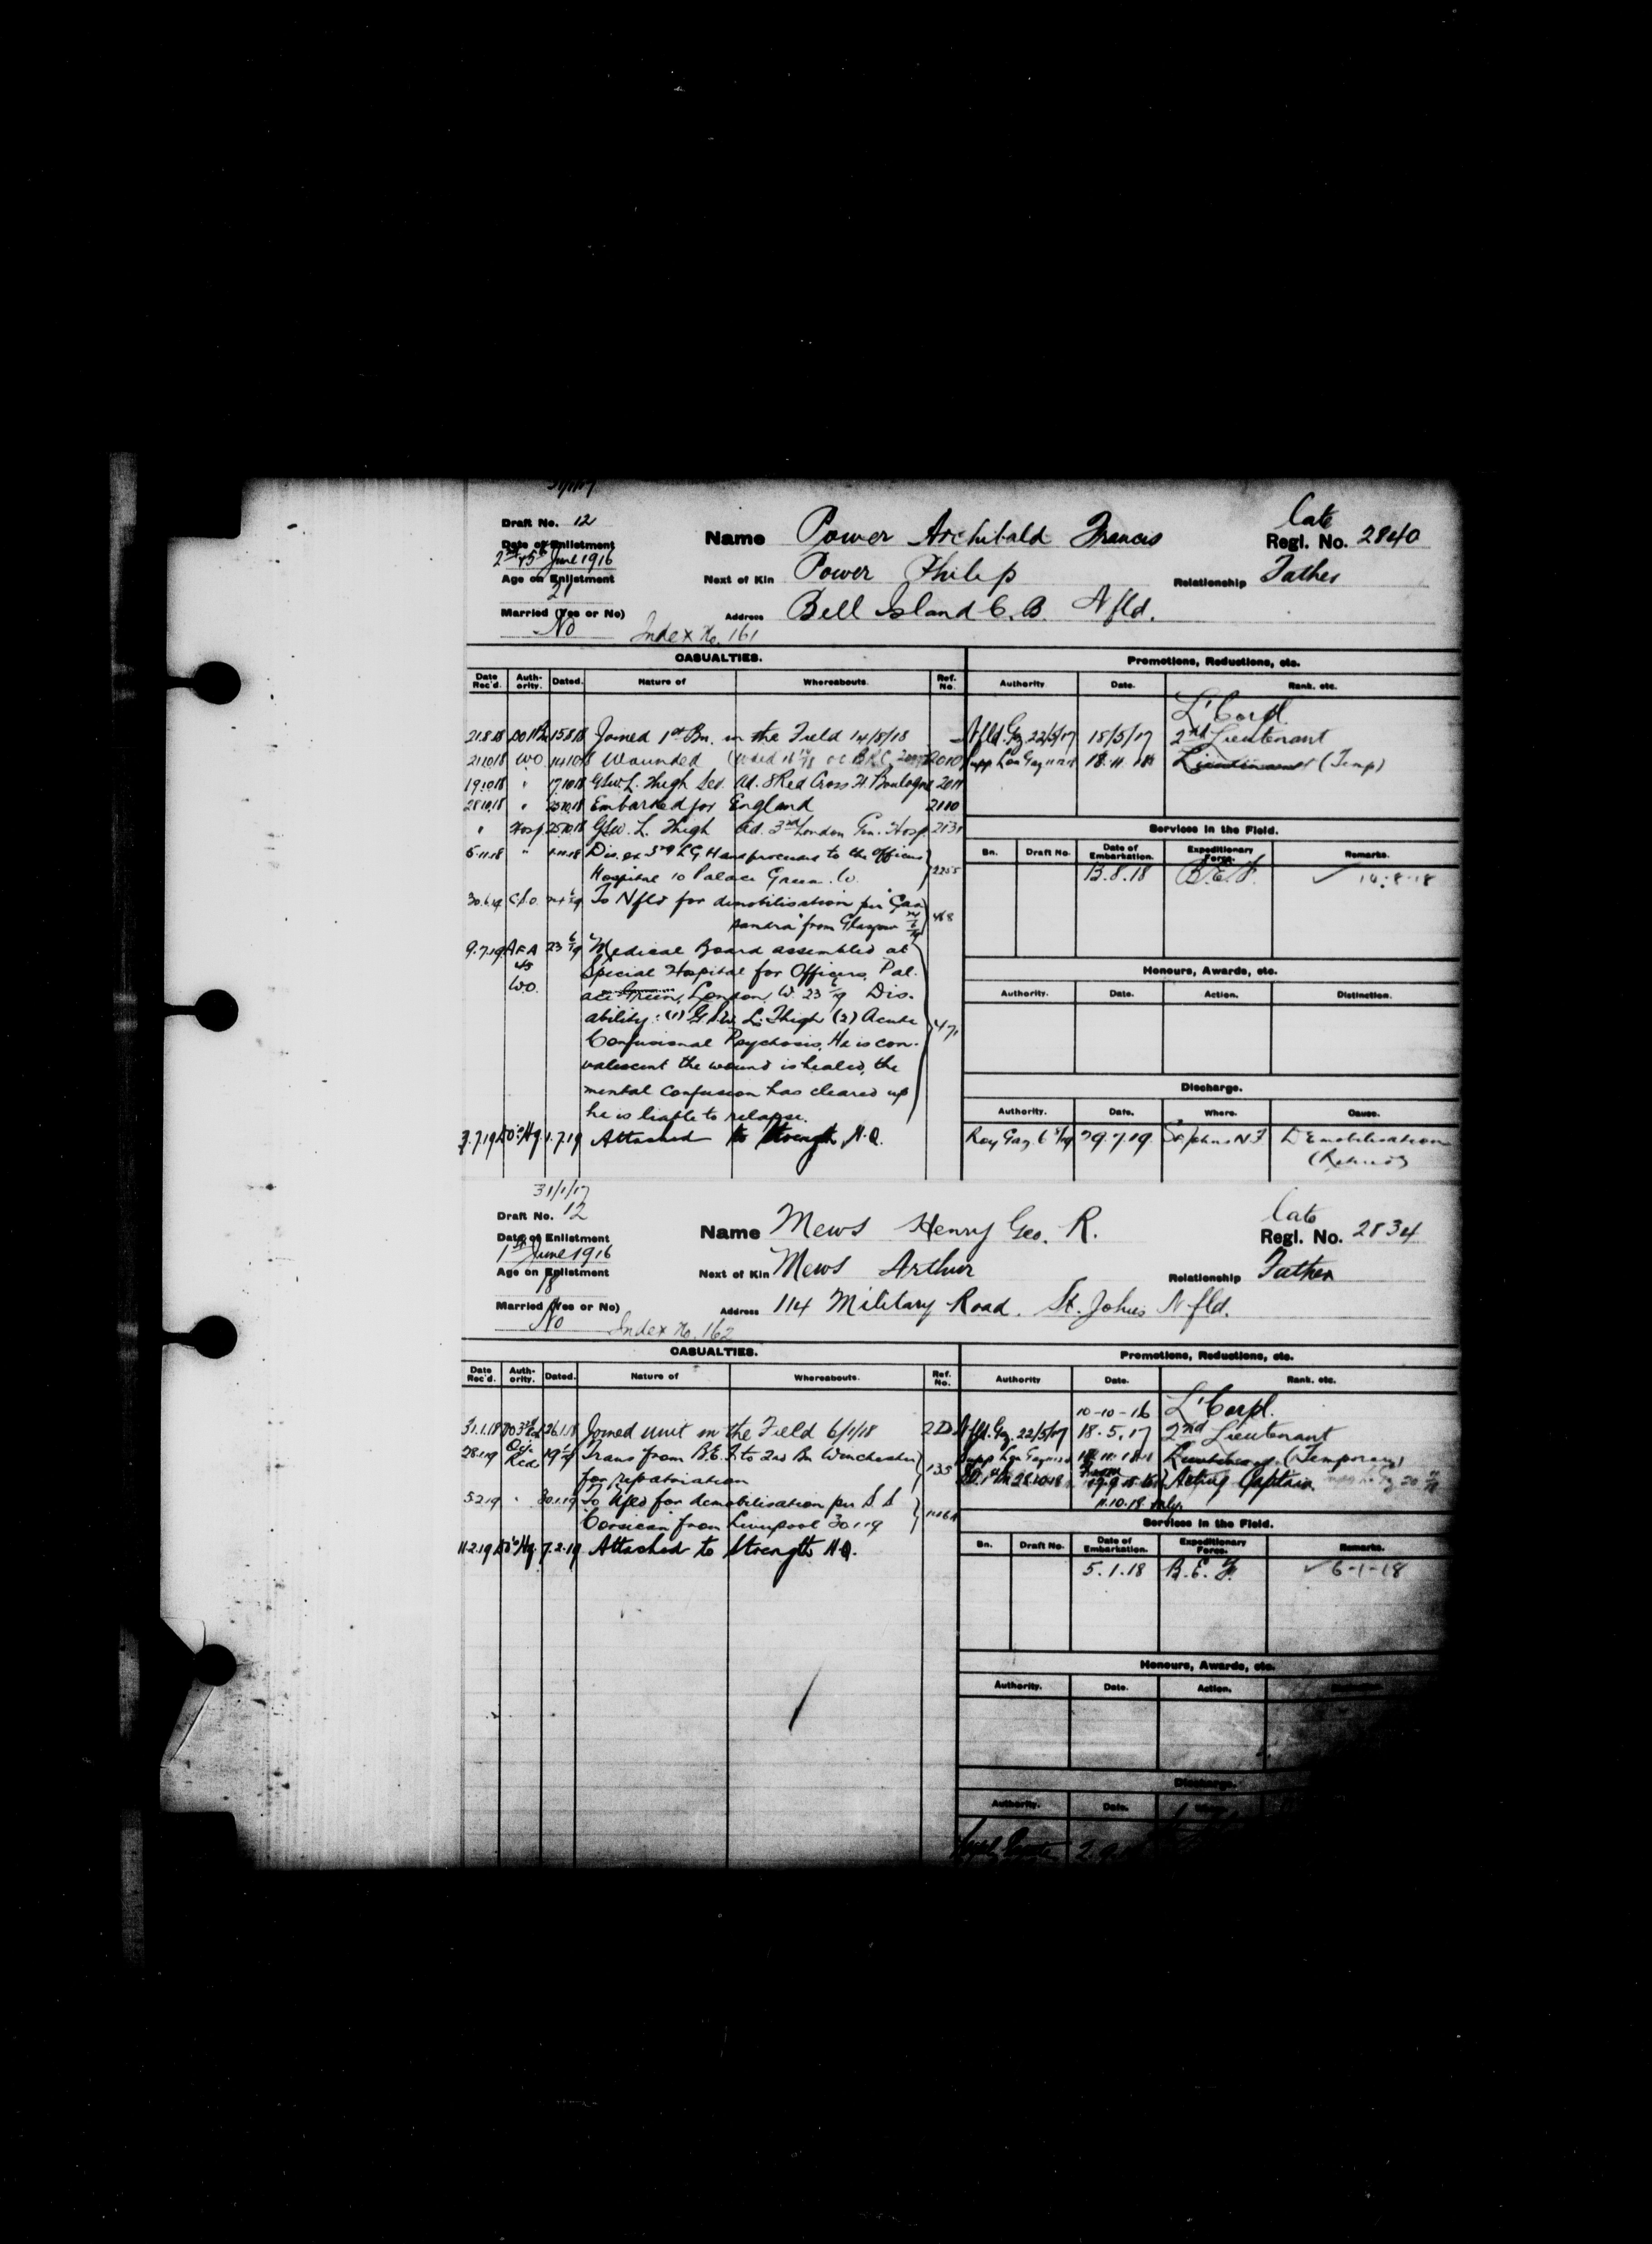 Draft No. 12
Date of Enlistment
June 1916
Age on Enlistment
21
Married (Yes or No)
No
Name Power Archibald Francis
late
Regl. No. 2840
Next of Kin Power Philip
Relationship Father
Address Bell Island C. B. Nfld.
Index No. 161
CASUALTIES.
Date Rec'd. Auth-ority. Dated. Nature of Whereabouts. Ref. No.
21.8.18 15.8.18 Joined 1st Bn. in the Field 14/8/18
21.10.18 WO Wounded
19.10.18 " 17.10.18 GSW. L. Thigh Sev. Ad. 8 Red Cross H. Boulogne
28.10.18 " Embarked for England 2100
" Hosp. 25.10.18 GSW. L. Thigh Ad. 3rd London Gen. Hosp.
5.11.18 " Dis. ex 3rd L G H and proceeds to the Officers
Hospital 10 Palace Green. W. 2255
To Nfld for demobilisation per "Cas
sandra" from Glasgow
9.7.19 AFA 45 WO. 23 6/19 "Medical Board assembled at
Special Hospital for Officers, Pal.
ace Green, London, W. 23 6/19 Dis.
ability: (1) G.S.W. L. Thigh (2) Acute
Confusional Psychosis. He is con-
valescent the wound is healed, the
mental confusion has cleared up
he is liable to relapse. 471
3.7.19 1.7.19 Attached to Strength H.Q.
Promotions, Reductions, etc.
Authority Date. Rank. etc.
L'Corpl.
Nfld. Gz. 22/5/17 18/5/17 2nd Lieutenant
18.11.18 Lieutenant (Temp)
Services in the Field.
Bn. Draft No. Date of Embarkation. Expeditionary Force. Remarks.
13.8.18 B.E.F. ✓ 14.8.18
Honours, Awards, etc.
Authority. Date. Action. Distinction.
Discharge.
Authority. Date. Where. Cause.
29.7.19 St Johns N F Demobilisation
(Retired)
31/1/17
Draft No. 12
Date of Enlistment
1st June 1916
Age on Enlistment
18
Married (Yes or No)
No
Name Mews Henry Geo. R.
late
Regl. No. 2834
Next of Kin Mews Arthur
Relationship Father
Address 114 Military Road. St. John's Nfld.
Index No. 162
CASUALTIES.
Date Rec'd. Auth-ority. Dated. Nature of Whereabouts. Ref. No.
31.1.18 26.1.18 Joined unit in the Field 6/1/18
28.1.19 Trans from B.E.F. to 2nd Bn Winchester
for repatriation 135
5.2.19 " 30.1.19 To Nfld for demobilisation per S.S
"Corsican" from Liverpool 30.1.19
11.2.19 7.2.19 Attached to Strength H.Q.
Promotions, Reductions, etc.
Authority Date. Rank. etc.
10-10-16 L'Corpl.
Nfld. Gz. 22/5/17 18.5.17 2nd Lieutenant
Lieutenant. (Temporary)
28.10.18 From Acting Captain
11.10.18 only.
Services in the Field.
Bn. Draft No. Date of Embarkation. Expeditionary Force. Remarks.
5.1.18 B.E.F. ✓ 6-1-18
Honours, Awards, etc.
Authority. Date. Action.
Discharge.
Authority. Date.